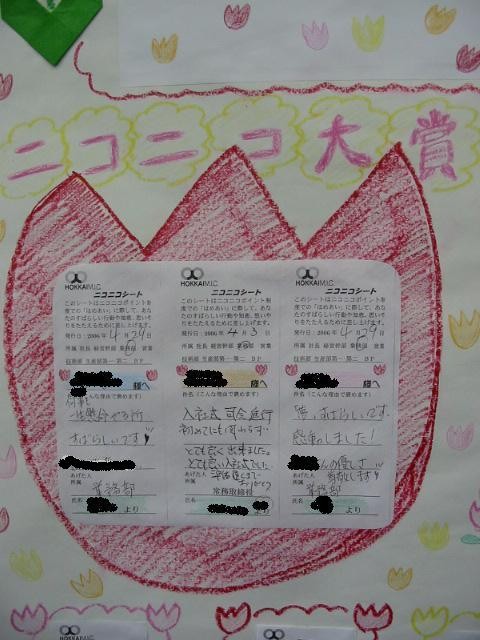 ニコニコ大賞
HOKKAIM.I.C
ニコニコシート
このシートはニコニコポイント制
度での「ほめあい」に際して、あな
たのすばらしい行動や知恵、思いや
りをたたえるために差し上げます。
発行日：2006年 4月29日
所属 社長 経営幹部 業務部 営業
技術部 生産部第一・第二 ＤＦ
様へ
件名（こんな理由で褒めます）
すばらしいです
あげた人
所属
業務部
氏名
より
HOKKAIM.I.C
ニコニコシート
このシートはニコニコポイント制度
での「ほめあい」に際して、あなた
のすばらしい行動や知恵、思いやり
をたたえるために差し上げます。
発行日：2006年 4月3日
所属 社長 経営幹部 業務部 営業
技術部 生産部第一・第二 ＤＦ
様へ
件名（こんな理由で褒めます）
入社式 司会進行
初めてにも関わらず…
とても良く出来ました。
とても良い入社式でした
あげた人
所属
常務取締役
氏名
より
HOKKAIM.I.C
ニコニコシート
このシートはニコニコポイント制
度での「ほめあい」に際して、あ
なたのすばらしい行動や知恵、思
いやりをたたえるために差し上げます。
発行日：2006年 4月29日
所属 社長 経営幹部 業務部 営業
技術部 生産部第一・第二 ＤＦ
様へ
件名（こんな理由で褒めます）
すばらしいです。
感動しました！
んの優しさ
あげた人
所属
業務部
氏名
より
HOKKAIM.I.C